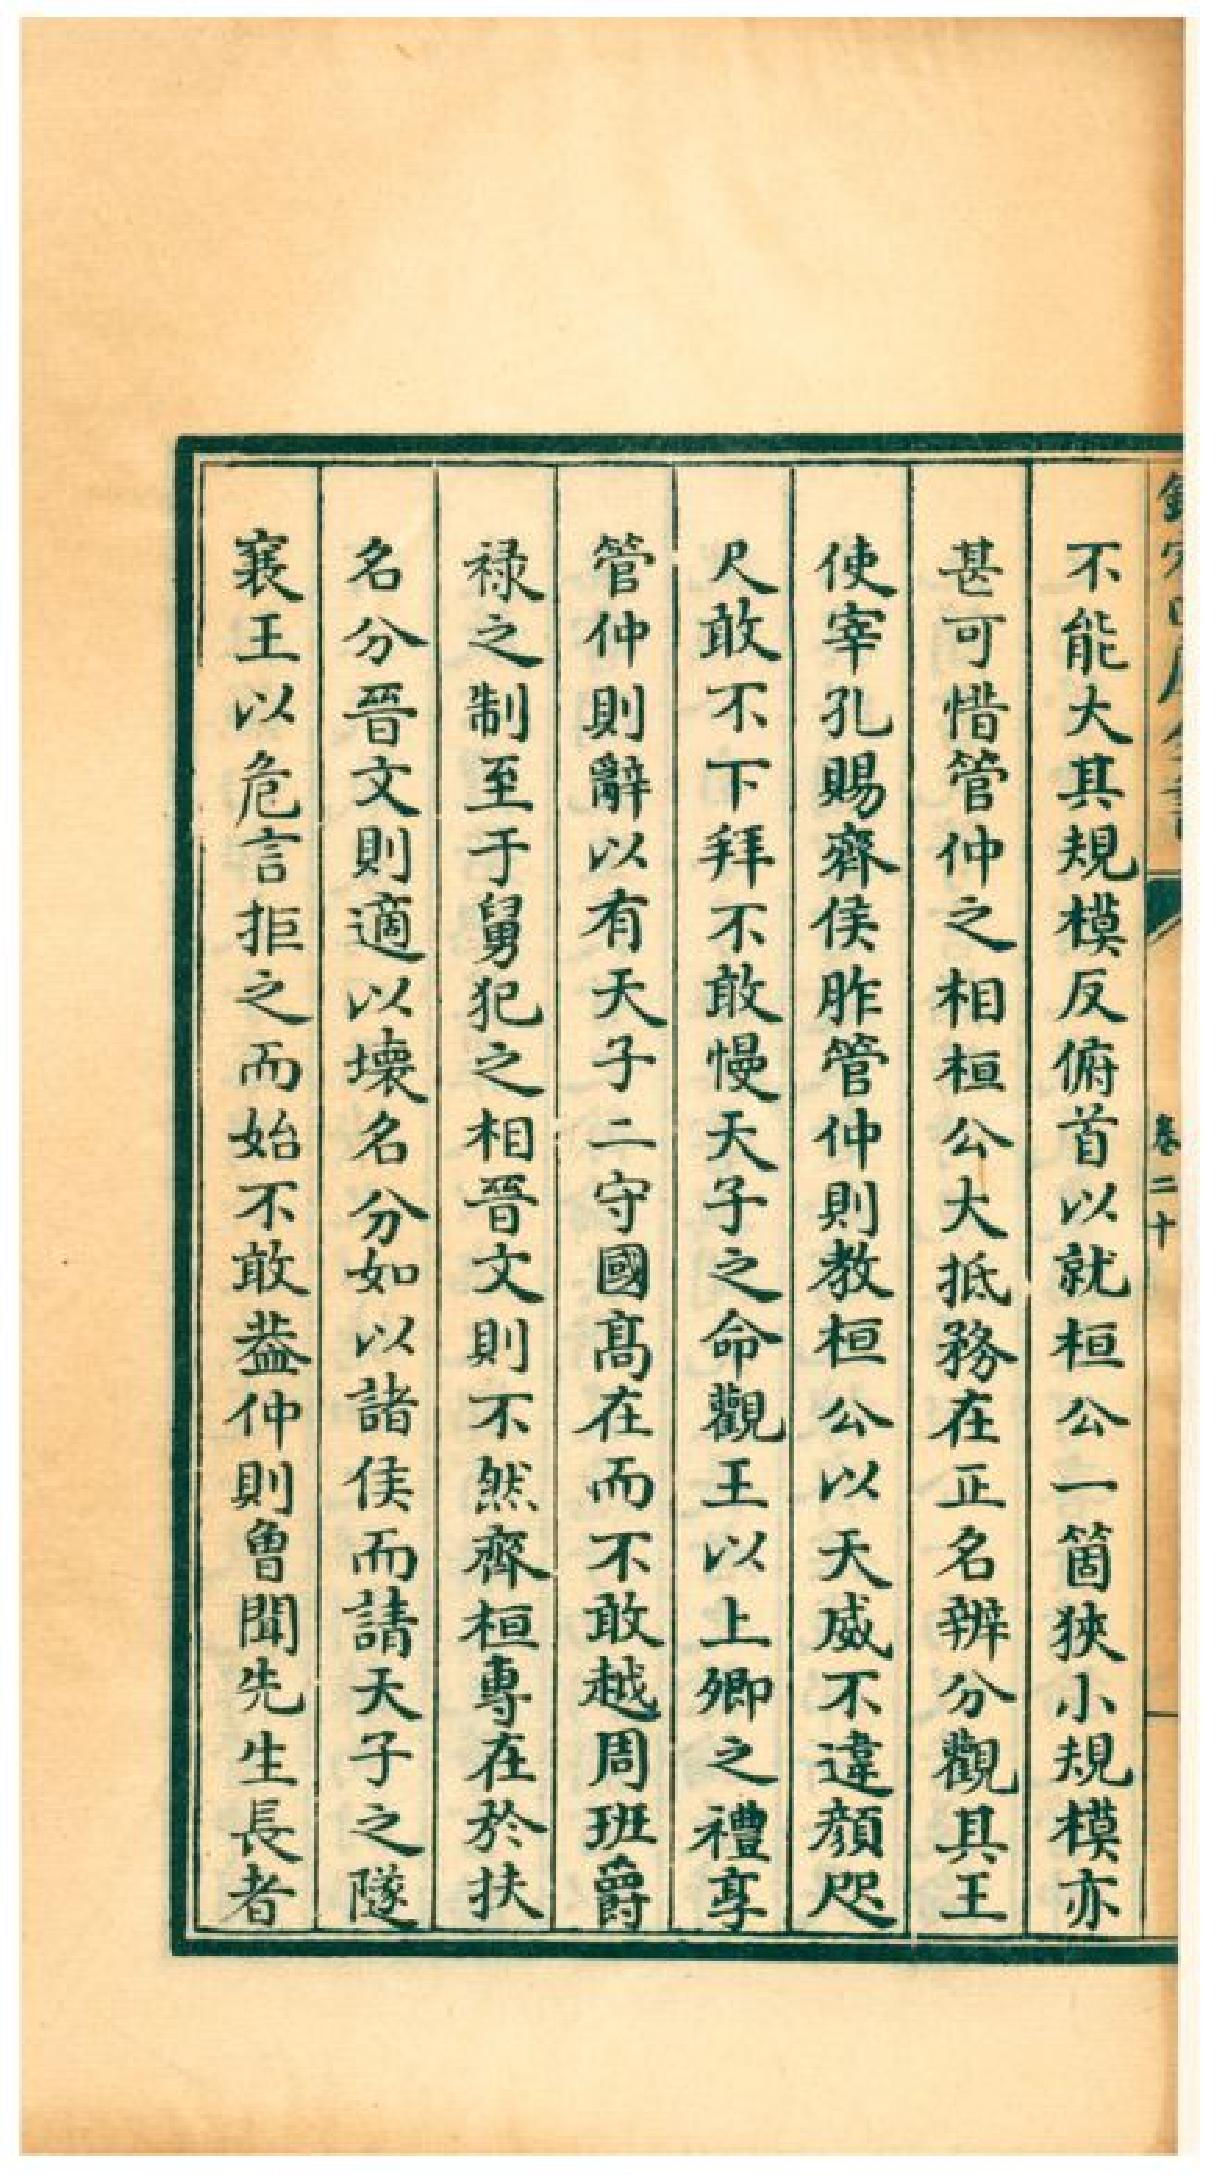 欽定四庫全書
卷二十
不能大其規模反俯首以就桓公一箇狹小規模亦
甚可惜管仲之相桓公大抵務在正名辨分觀其王
使宰孔賜齊侯胙管仲則教桓公以天威不違顔咫
尺敢不下拜不敢慢天子之命觀王以上卿之禮享
管仲則辭以有天子二守國髙在而不敢越周班爵
禄之制至于舅犯之相晉文則不然齊桓專在於扶
名分晉文則適以壞名分如以諸侯而請天子之隧
襄王以危言拒之而始不敢葢仲則曽聞先生長者